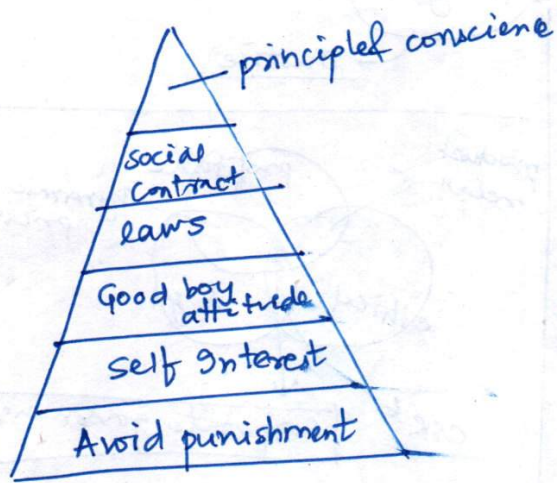 principled conscience
social
contract
laws
Good boy
attitude
self Interest
Avoid punishment